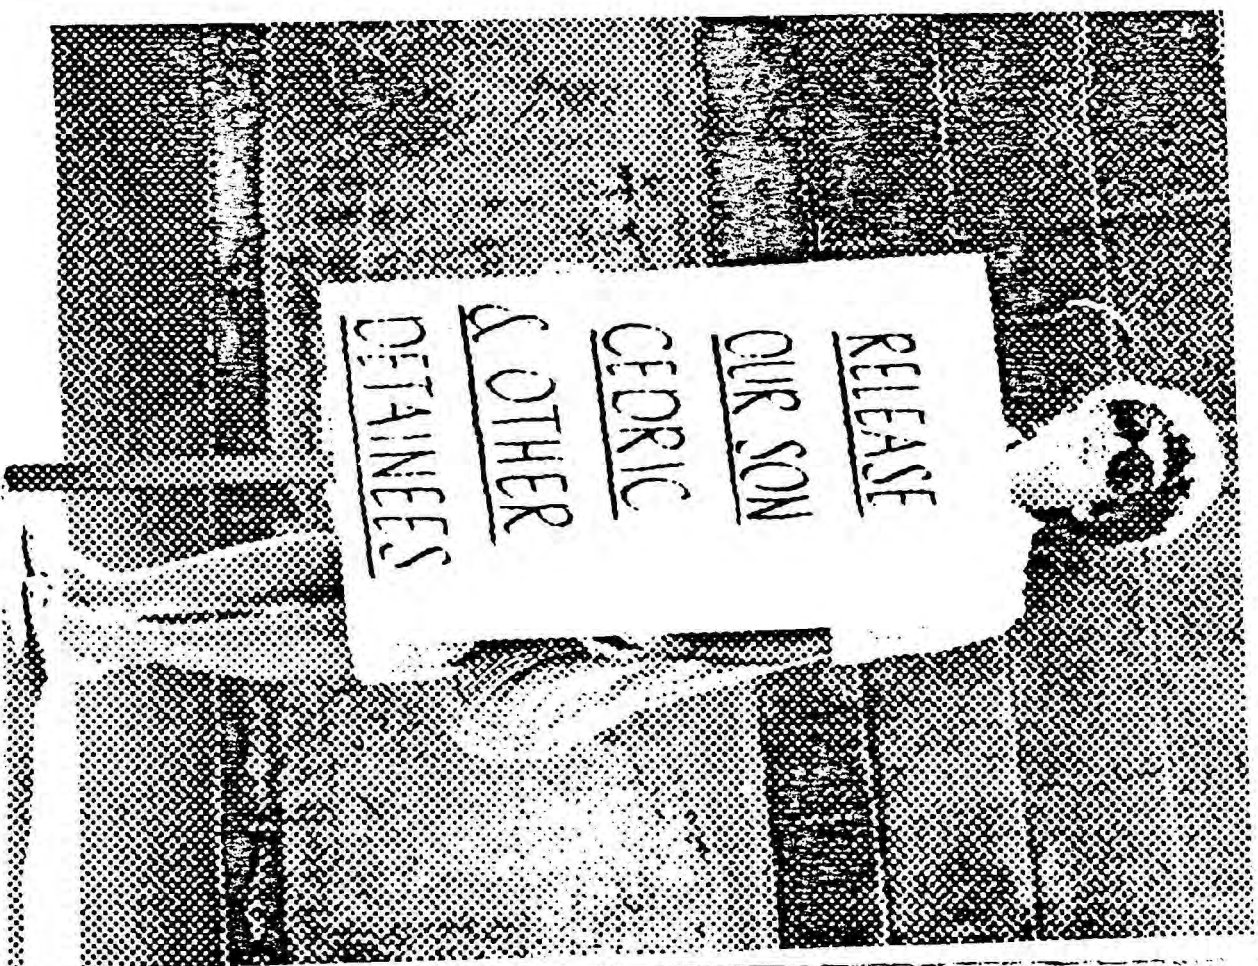 RELEASE
OUR SON
CEDRIC
& OTHER
DETAINEES